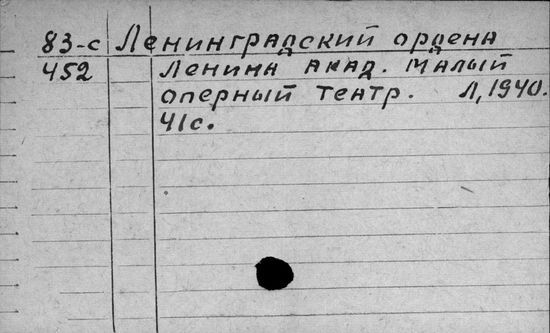 83-с Ленинградский ордена
452 Ленина Акад. Малый
оперный театр. Л, 1940.
41с.